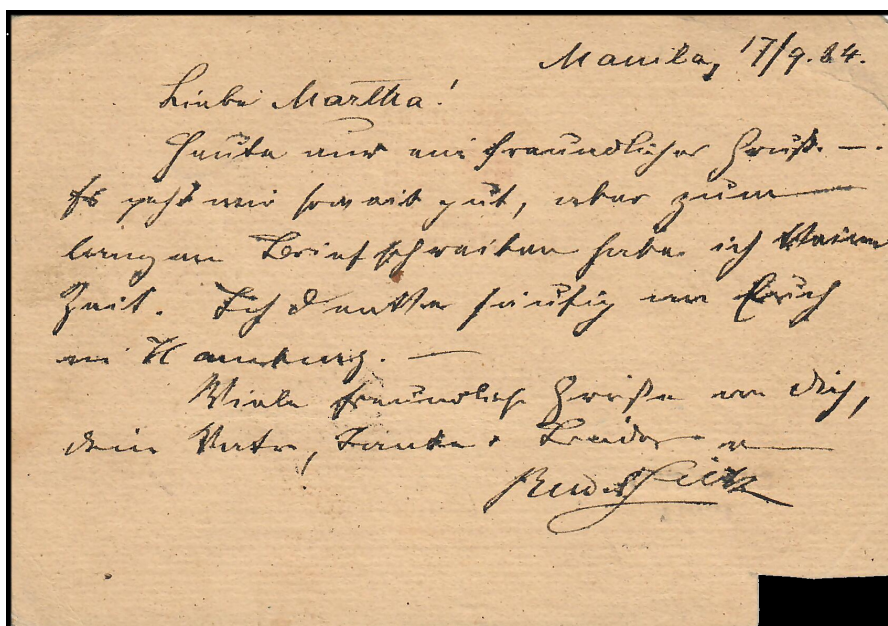 Manila, 17/9.84.
Liebe Martha!
Heute nur ein freundlicher Gruß. —
Es geht mir soweit gut, aber zum
langen Briefschreiben habe ich keine
Zeit. Ich denke häufig an Euch
in Hamburg. —
Viele freundliche Grüße an Dich,
dein Vater, Tante